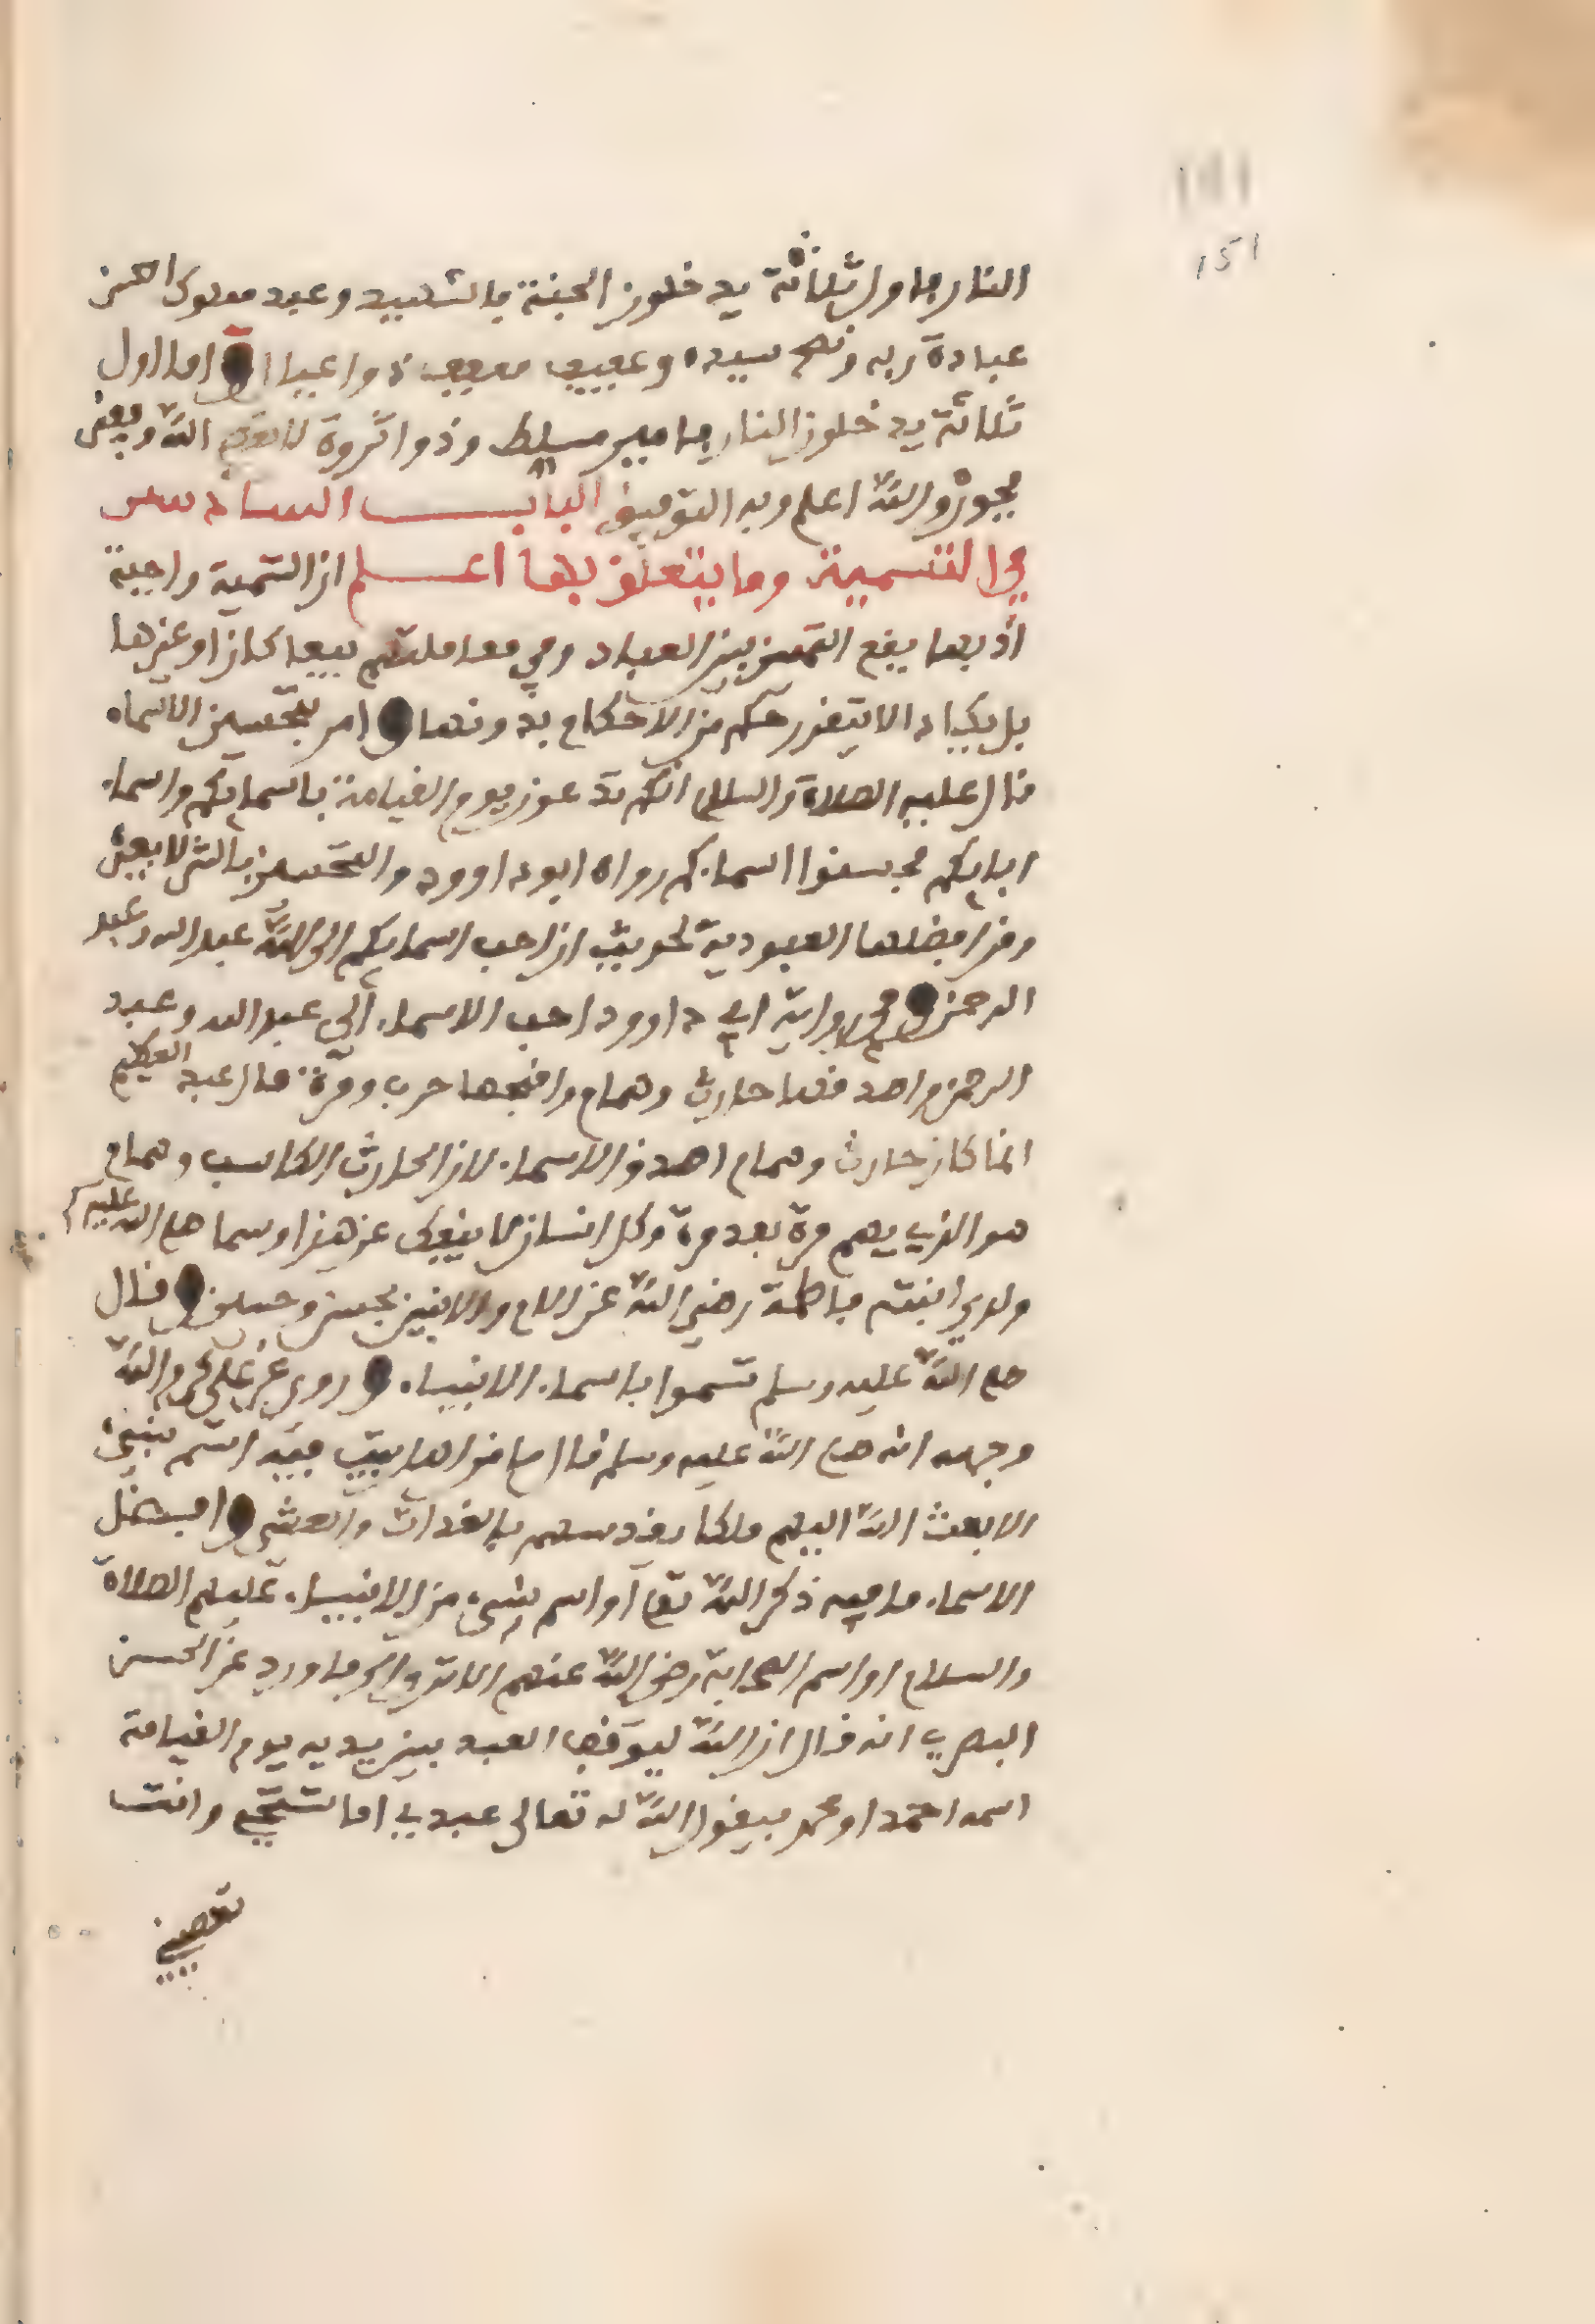 151
النار فاول ثلاثة يدخلون الجنة فالشهيد وعبد مملوك احسن
عبادة ربه ونصح سيده وعفيف متعفف ذوا عيال و اما اول
ثلاثة يدخلون النار فامير مسلط وذوا ثروة لا يعطي الله وفقير
فجور والله اعلم وبه التوفيق الباب السادس
في التسمية وما يتعلق بها اعلم ان التسمية واجبة
اذ بها يقع التمييز بين العباد وفي معاملتهم بيعا كان او غيرها
بل يكاد الا يتقرر حكم من الاحكام بدونها و امر بتحسين الاسماء
قال عليه الصلاة والسلام انكم تدعون يوم القيامة باسمايكم واسماء
ابايكم فحسنوا اسماءكم رواه ابو داوود والتحسين بالشي لا يعني
ومن افضلها العبودية لحديث ان احب اسمايكم الى الله عبد الله وعبد
الرحمن و في رواية ابي داوود احب الاسماء الي عبد الله وعبد
الرحمن واصدقها حارث وهمام واقبحها حرب ومرة قال عبد العظيم
انما كان حارث وهمام اصدق الاسماء لان الحارث الكاسب وهمام
هو الذي يهم مرة بعد مرة وكل انسان لا ينفك عن هذا وسما صلى الله عليه
ولدي ابنته فاطمة رضي الله عن الام والابنين بحسن وحسين و قال
صلى الله عليه وسلم تسموا باسماء الانبياء و روي عن علي كرم الله
وجهه انه صلى الله عليه وسلم قال ما من اهل بيت فيه اسم نبيء
الا بعث الله اليهم ملكا يقدسهم بالغدات والعشي و افضل
الاسماء ما فيه ذكر الله تعلى او اسم نبيء من الانبياء عليهم الصلاة
والسلام او اسم الصحابة رضي الله عنهم الا ترى الى ما ورد عن الحسن
البصري انه قال ان الله ليوقف العبد بين يديه يوم القيامة
اسمه احمد او محمد فيقول الله له تعالى عبدي اما تستحي وانت
تعصيني